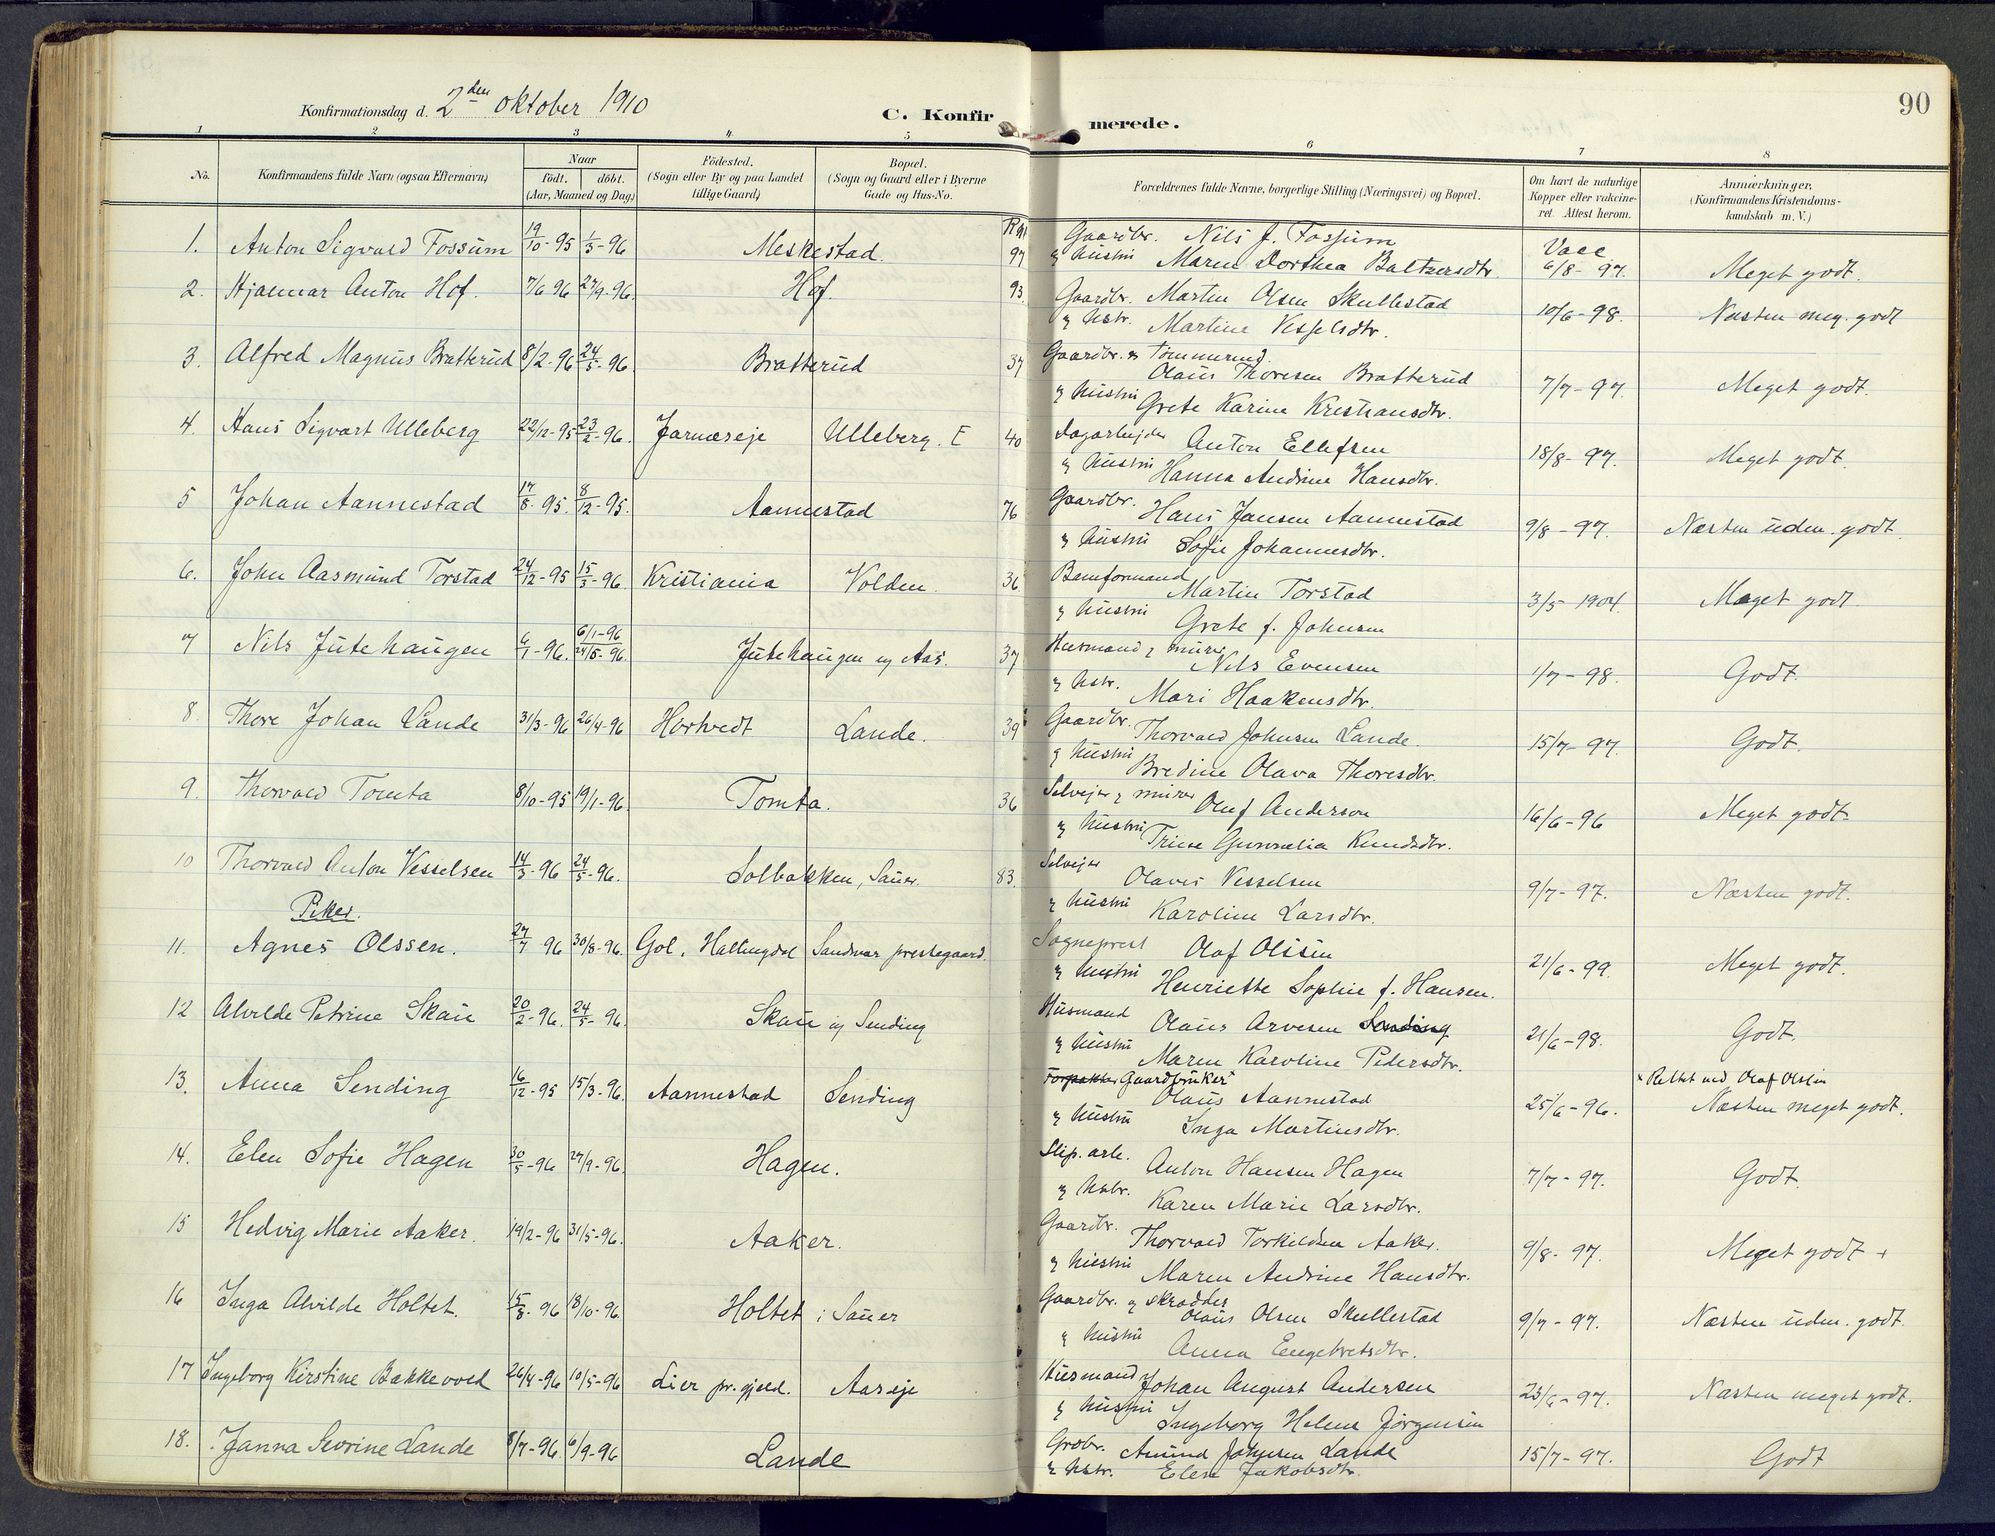 90
Konfirmationsdag d. 2den oktober 1910 C. Konfirmerede.
1 2 3 4 5 6 7 8
No. Konfirmandens fulde Navn (ogsaa Efternavn) Naar födt. döbt. (Aar, Maaned og Dag) Födested. (Sogn eller By og paa Landet tillige Gaard) Bopæl. (Sogn og Gaard eller i Byerne Gade og Hus-No. Forældrenes fulde Navne, borgerlige Stilling (Næringsvei) og Bopæl. Om havt de naturlige Kopper eller vakcineret. Attest herom. Anmærkninger. (Konfirmandens Kristendomskundskab m. V.)
1. Anton Sigvald Fossum 19/10-95 1/3-96 Meskestad. 97 Gaardbr. Nils J. Fossum Vacc. 6/8-97. Meget godt.
og hustru Maren Dorthea Baltzersdtr.
2. Hjalmar Anton Hof. 7/6 96 27/9-96. Hof. 93. Gaardbr. Martin Olsen Skullestad 10/6-98. Næsten meg. godt
og hstr. Martine Vesselsdtr.
3. Alfred Magnus Bratterud 8/2-96 24/5-96. Bratterud 37 Gaardbr. og tømmermd. Olaus Thoresen Bratterud 7/7-97. Meget godt.
og hustru Grete Karine Kristiansdtr.
4. Hans Sigvart Ulleberg 22/12-95 23/2-96. Jarnæseje Ulleberg. E 40 Dagarbejder Anton Ellefsen 18/8-97. Meget godt.
og hustru Hanna Andrine Hansdtr.
5 Johan Aannestad 17/8-95. 8/12-95. Aannestad 76 Gaardbr. Hans Jansen Aannestad 9/8-97. Næsten uden. godt.
og hustru Sofie Johannesdtr.
6. John Aasmund Torstad 24/12-95 15/3-96. Kristiania Volden. 36 Banformand Martin Torstad 3/5-1904. Meget godt.
og hustru Grete f. Johnsen
7 Nils Jutehaugen 6/1-96. 6/1-96 24/5-96. Jutehaugen og Aas. 37 Husmand & murer Nils Evensen 1/7-98. Godt.
og hstr. Mari Haakensdtr.
8. Thore Johan Lande 31/3-96 26/4-96 Hortvedt Lande. 39 Gaardbr. Thorvald Johnsen Lande. 15/7-97. Godt.
og hustru Bredine Olava Thoresdtr.
9. Thorvald Tomta 8/10-95 19/1-96. Tomta. 36 Selvejer & murer Oluf Anderson 16/6-96 Meget godt.
og hustru Trine Gunnelia Knudsdtr.
10 Thorvald Anton Vesselsen 14/3-96 24/5-96. Solbakken, Sauer. 83. Selvejer Olaves Vesselsen 9/7-97. Næsten godt.
og hustru Karoline Larsdtr.
Piker.
11. Agnes Olssen. 27/7 96 30/8-96. Gol, Hallingdal Sandvær prestegaard. Sogneprest Olaf Olssen 21/6-99. Meget godt.
og hustru Henriette Sophie f. Hansen.
12 Alvilde Petrine Skau 20/2-96. 24/5-96. Skau og Sending Husmand Olaus Arvesen Sending 21/6-98. Godt.
og hustru Maren Karoline Pedersdtr.
13. Anna Sending 16/12-95 15/3-96. Aannestad Sending Forpakter Gaardbruker× Olaus Aannestad 25/6-96. × Rettet ved Olaf Olssen Næsten meget godt.
og hustru Inga Martinsdtr.
14. Elen Sofie Hagen 30/5-96 27/9-96. Hagen. Slip. arb. Anton Hansen Hagen 7/7-97. Godt.
og hstr. Karen Marie Larsdtr.
15 Hedvig Marie Aaker. 19/2-96 31/5-96. Aaker. Gaardbr. Thorvald Torkildsen Aaker. 9/8-97. Meget godt +
og hustru Maren Andrine Hansdtr.
16 Inga Alvilde Holtet. 15/8-96 18/10-96. Holtet i Sauer Gaardbr. og skrædder Olaus Olsen Skullestad 9/7-97. Næsten uden. godt.
og hustru Anna Engebretsdtr.
17 Ingeborg Kirstine Bakkevold 26/4-96 10/5-96 Lier pr.gjeld. Aaseje Husmand Johan August Andersen 23/6-97. Næsten meget godt.
og hustru Ingeborg Helene Jörgensen
18. Janna Sevrine Lande 8/7-96 6/9-96 Lande Grdbr. Amund Johnsen Lande 15/7-97. Godt
og hstr. Elen Jakobsdtr.